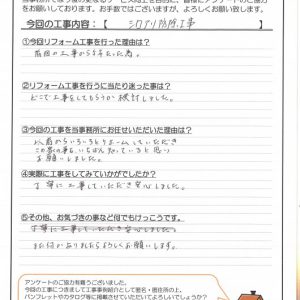 をお願いしております。お手数ではございますが、よろしくお願い致します。
今回の工事内容:【 シロアリ防除工事 】
①今回リフォーム工事を行った理由は?
前回の工事から5年たった為。
②リフォーム工事を行うに当たり迷った事は?
どこで工事をしてもらうか検討しました。
③今回の工事を当事務所にお任せいただいた理由は?
以前からいろいろとリフォームしていただき
この家の事をいちばん知っていると思い
お願いしました。
④実際に工事をしてみていかがでしたか?
丁寧に工事していただき安心しました。
⑤その他、お気づきの事など何でもけっこうです。
丁寧に工事していただき安心しました。
また何かありましたらよろしくお願いします。
アンケートのご協力有難うございました。
今回の工事につきまして工事事例紹介として匿名・居住所の上、
パンフレットやカタログ等に掲載させていただいてよろしいでしょうか?